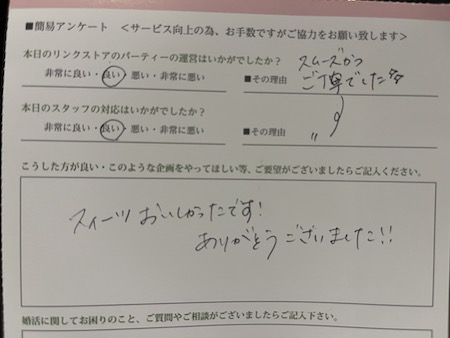 ■簡易アンケート <サービス向上の為、お手数ですがご協力をお願い致します>
本日のリンクストアのパーティーの運営はいかがでしたか?
非常に良い・良い・悪い・非常に悪い ■その理由
スムーズかつ
ご丁寧でした
本日のスタッフの対応はいかがでしたか?
非常に良い・良い・悪い・非常に悪い ■その理由 〃
こうした方が良い・このような企画をやってほしい等、ご要望がございましたらご記入ください。
スイーツおいしかったです!
ありがとうございました!!
婚活に関してお困りのこと、ご質問やご相談がございましたらご記入下さい。